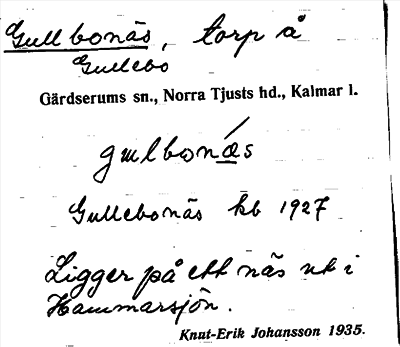 Gullbonäs, torp å
Gullebo
Gärdserums sn., Norra Tjusts hd., Kalmar l.
gulbonǽs
Gullebonäs kb 1927
Ligger på ett näs ut i
Hammarsjön.
Knut-Erik Johansson 1935.